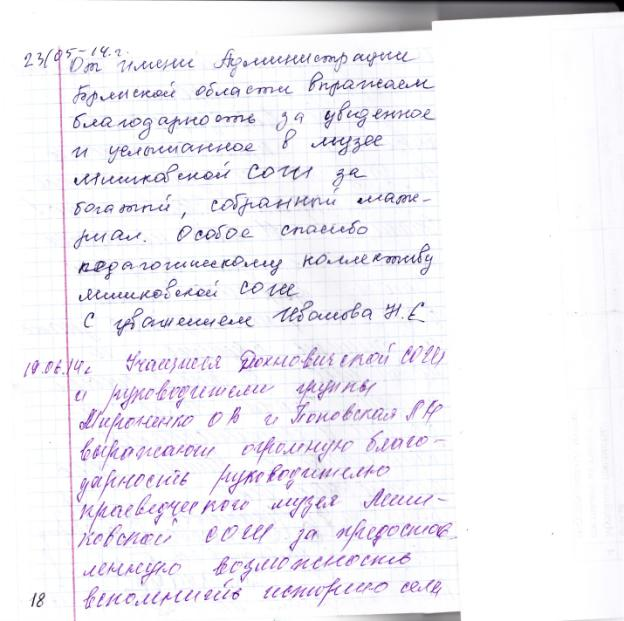 23/05-14.г.
От имени Администрации
Брянской области выражаем
благодарность за увиденное
и услышанное в музее
Мишковской СОШ за
богатый, собранный мате-
риал. Особое спасибо
педагогическому коллективу
Мишковской СОШ
С уважением Иванова Н.Е.
19.06.14г Учащиеся Дохновичской СОШ
и руководители группы
Мироненко О В и Поповская Л Н
выражают огромную благо-
дарность руководителю
краеведческого музея Миш-
ковской СОШ за предостав
ленную возможность
вспомнить историю села
18